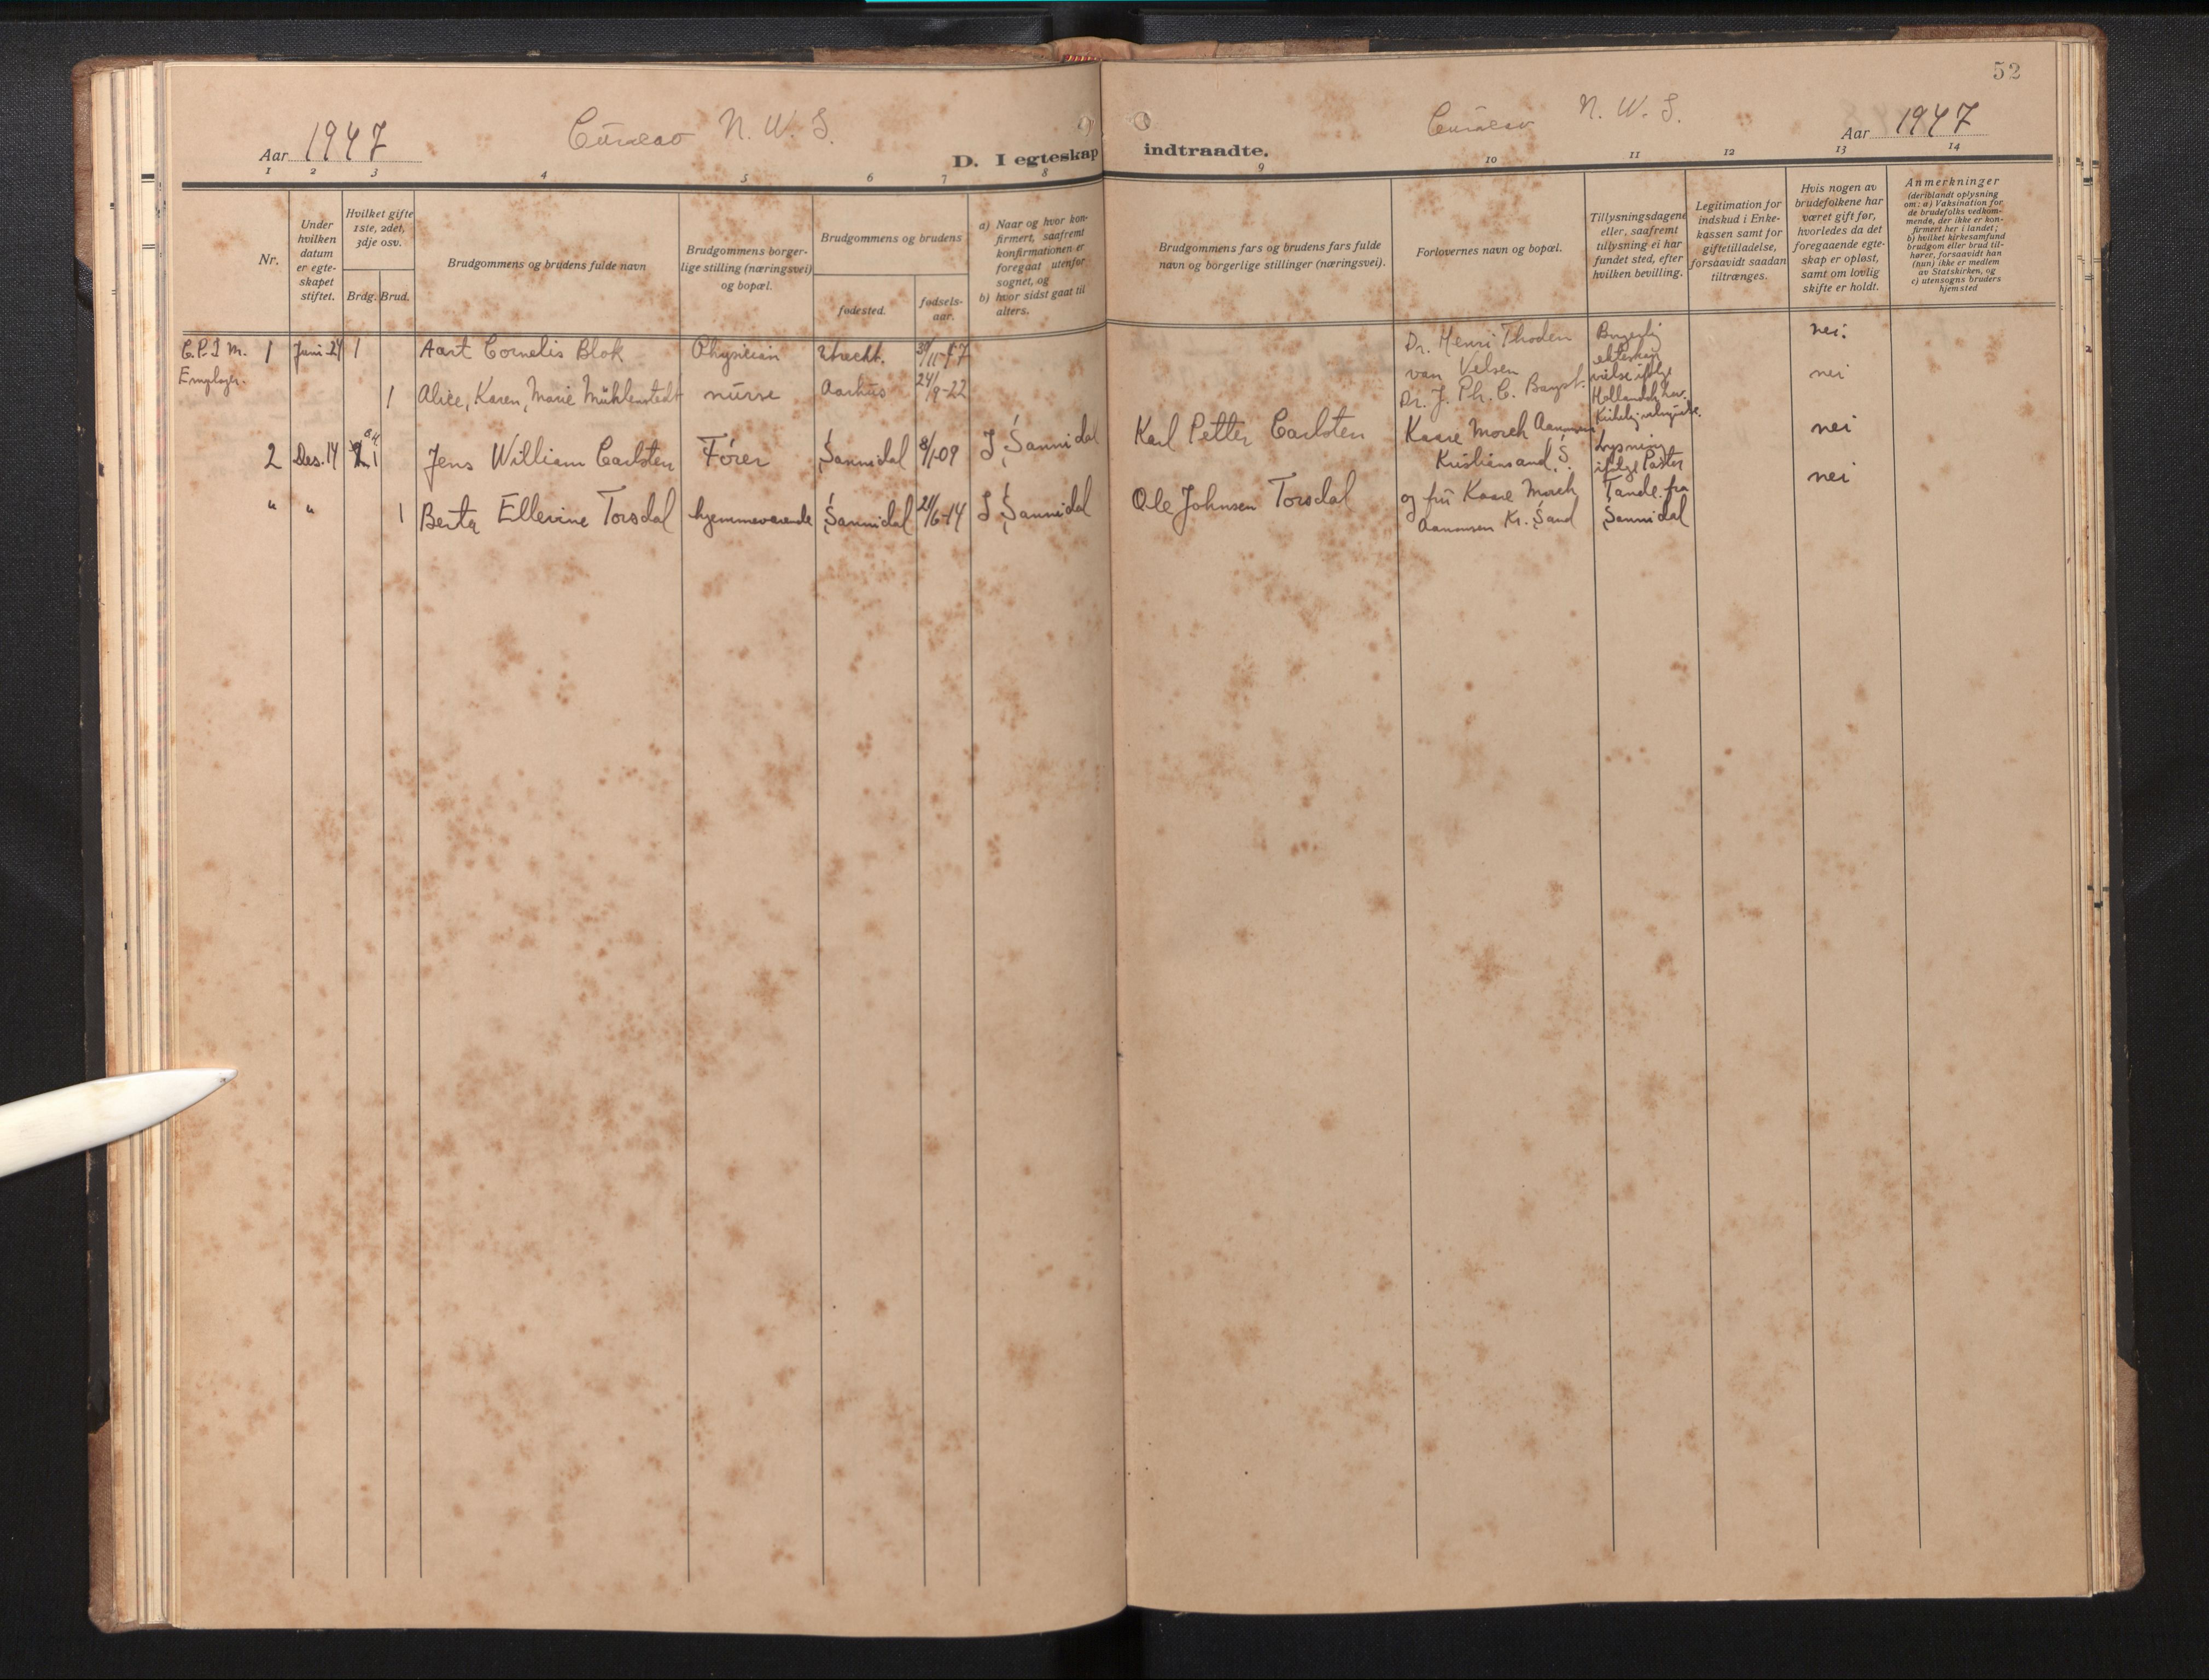 52
Aar 1947
Curacao N. W. I.
D. I egteskap
1 2 3 4 5 6 7 8
Nr.
Under hvilken datum er egte-skapet stiftet.
Hvilket gifte 1ste, 2det, 3dje osv.
Brdg. Brud.
Brudgommens og brudens fulde navn
Brudgommens borger-lige stilling (næringsvei) og bopæl.
Brudgommens og brudens
fødested.
fødsels-aar.
a) Naar og hvor kon-firmert, saafremt konfirmationen er foregaat utenfor sognet, og
b) hvor sidst gaat til alters.
C.P.I M. 1 Juni 24 1 Aart Cornelis Blok Physician Utrecht. 30/11-17
1 Alice, Karen, Marie Mühlenstedt nurse Aarhus 24/9-22
2 Des. 14 1 Jens William Carlsten Fører Sannidal 8/1-09 I Sannidal
" " 1 Berta Ellevine Torsdal hjemmeværende Sannidal 21/6-14 I Sannidal
Curacao N. W. I.
Aar 1947
indtraadte.
9 10 11 12 13 14
Brudgommens fars og brudens fars fulde navn og borgerlige stillinger (næringsvei).
Forlovernes navn og bopæl.
Tillysningsdagene eller, saafremt tillysning ei har fundet sted, efter hvilken bevilling.
Legitimation for indskud i Enke-kassen samt for giftetilladelse, forsaavidt saadan tiltrænges.
Hvis nogen av brudefolkene har været gift før, hvorledes da det foregaaende egte-skap er opløst, samt om lovlig skifte er holdt.
Anmerkninger
(deriblandt oplysning om: a) Vaksination for de brudefolks vedkom-mende, der ikke er kon-firmert her i landet;
b) hvilket kirkesamfund brudgom eller brud til-hører, forsaavidt han (hun) ikke er medlem av Statskirken, og
c) utensogns bruders hjemsted
Dr. Henri Thoden van Velsen
Dr. J. Ph. C.
Borgerlig ekteskap vielse ifølge Hollandsk lov.
nei.
nei
Karl Petter Carlsten
Kaare Morch Aanonsen Kristiansand S.
Lysning ifølge Pastor Tande fra Sannidal
nei
Ole Johnsen Torsdal
og frú Kaare Morch Aanonsen Kr. Sand
nei